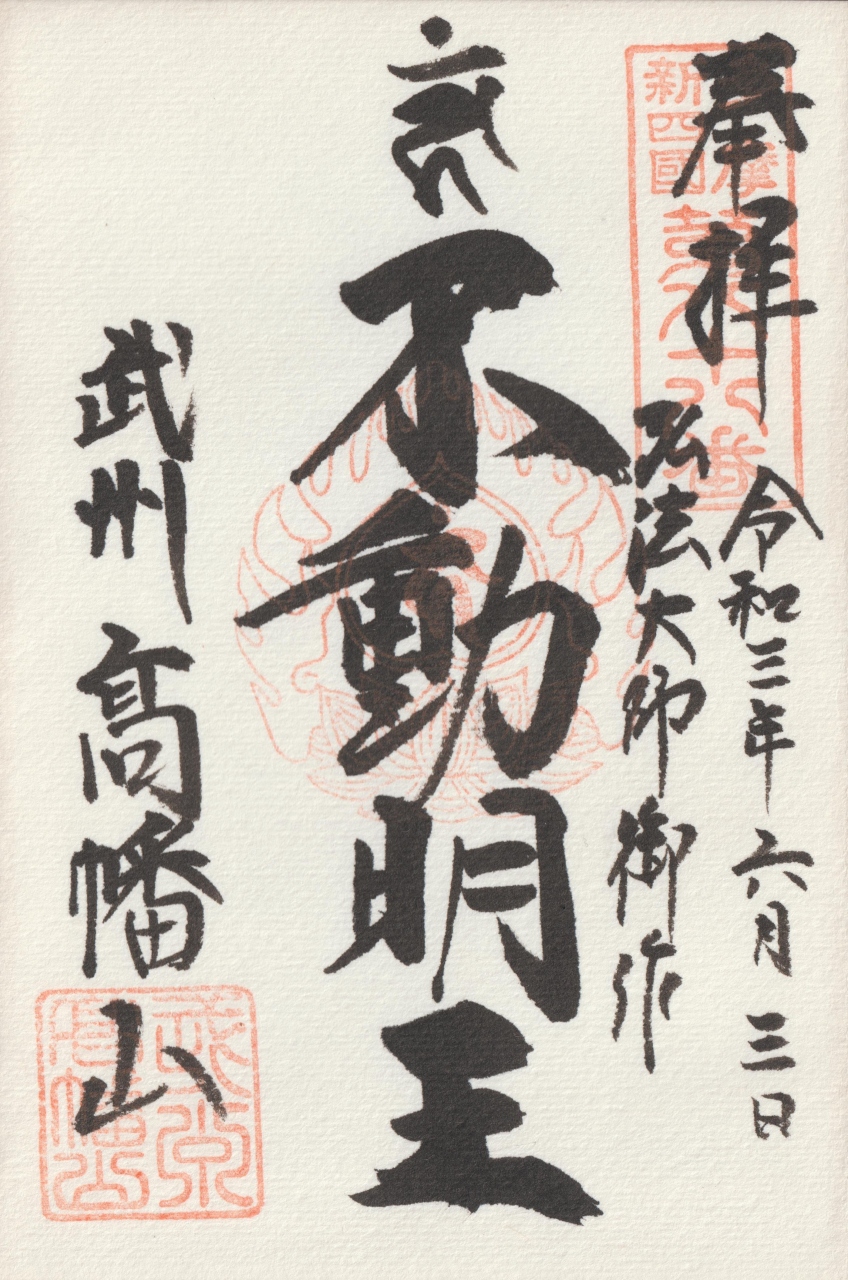 奉拝
令和三年六月三日
弘法大師御作
不動明王
武州 高幡山
新四國